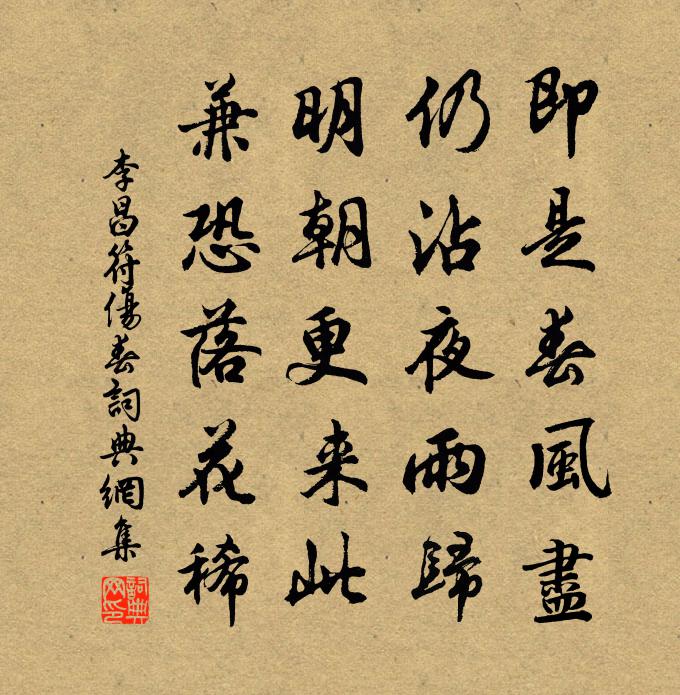 即是春風盡
仍沾夜雨歸
明朝更来此
兼恐落花稀
李昌符傷春詞典網集
詞典网印